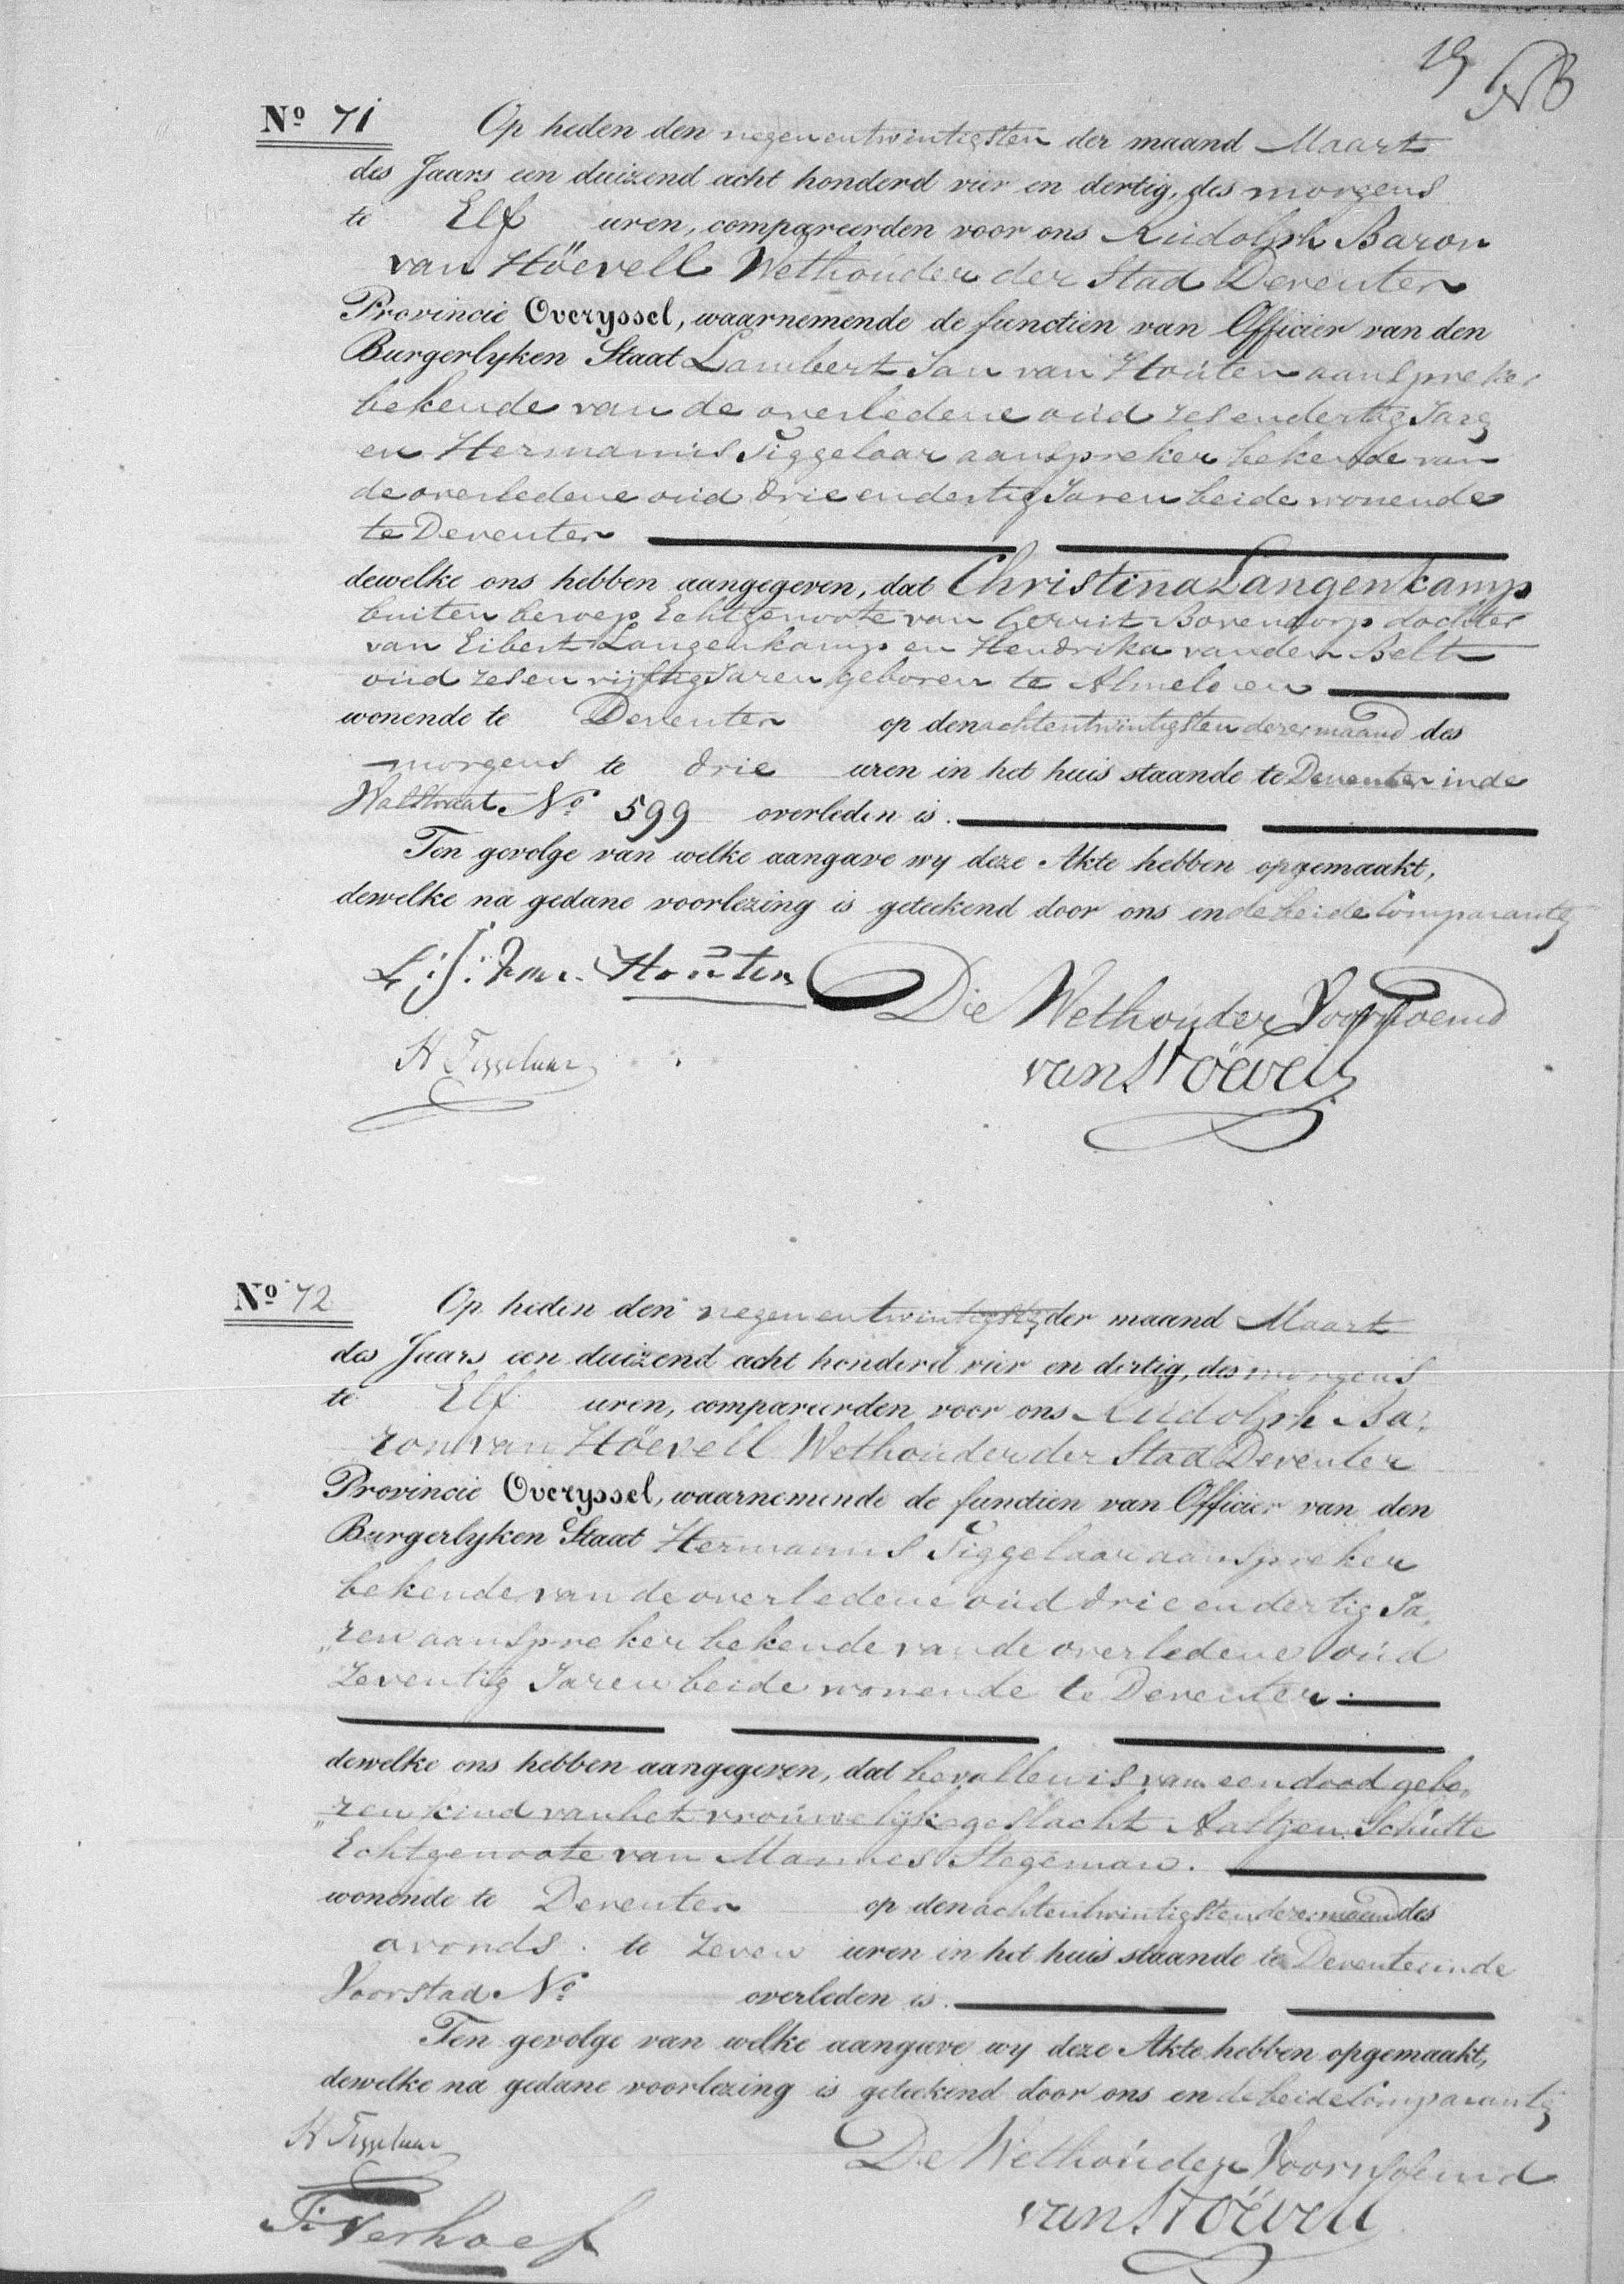 19
Nº 71 Op heden den negenentwintigsten der maand Maart
des Jaars een duizend acht honderd vier en dertig, des morgens
te Elf uren, compareerden voor ons Rudolph Baron
van Höevell Wethouder der Stad Deventer
Provincie Overyssel, waarnemende de functien van Officier van den
Burgerlyken Staat Lambert Jan van Houten aanspreker
bekende van de overledene oud zesendertig Jaren
en Hermannus Tiggelaar aanspreker bekende van
de overledene oud drie endertig Jaren beide wonende
te Deventer
dewelke ons hebben aangegeven, dat Christina Langenkamp
buiten beroep Echtgenoote van Gerrit Bovendorp dochter
van Eibert Langenkamp en Hendrika vanden Belt
oud zesenvijftig Jaren geboren te Almelo en
wonende te Deventer op den achtentwintigsten dezer maand des
morgens te drie uren in het huis staande te Deventer in de
Walstraat Nº 599 overleden is.
Ten gevolge van welke aangave wy deze Akte hebben opgemaakt,
dewelke na gedane voorlezing is geteekend door ons en de beide Comparanten
L: J: van Houten Die Wethouder Voornoemd
H Tiggelaar van Höevell
Nº 72 Op heden den negenentwintigsten der maand Maart
des Jaars een duizend acht honderd vier en dertig, des morgens
te Elf uren, compareerden voor ons Rudolph Ba:
ron van Höevell Wethouder der Stad Deventer
Provincie Overyssel, waarnemende de functien van Officier van den
Burgerlyken Staat Hermannus Tiggelaar aanspreker
bekende van de overledene oud drie en dertig Ja„
„ren aanspreker bekende van de overledene oud
Zeventig Jaren beide wonende te Deventer.
dewelke ons hebben aangegeven, dat bevallen is van een dood gebo„
„ren kind van het vrouwelijk geslacht Aaltjen Schutte
Echtgenoote van Mannes Stegeman.
wonende te Deventer op den achtentwintigsten dezer maand des
avonds te zeven uren in het huis staande te Deventer in de
Voorstad Nº overleden is.
Ten gevolge van welke aangave wy deze Akte hebben opgemaakt,
dewelke na gedane voorlezing is geteekend door ons en de beide Comparanten
H Tiggelaar De Wethouder Voornoemd
F: Verhoef van Höevell